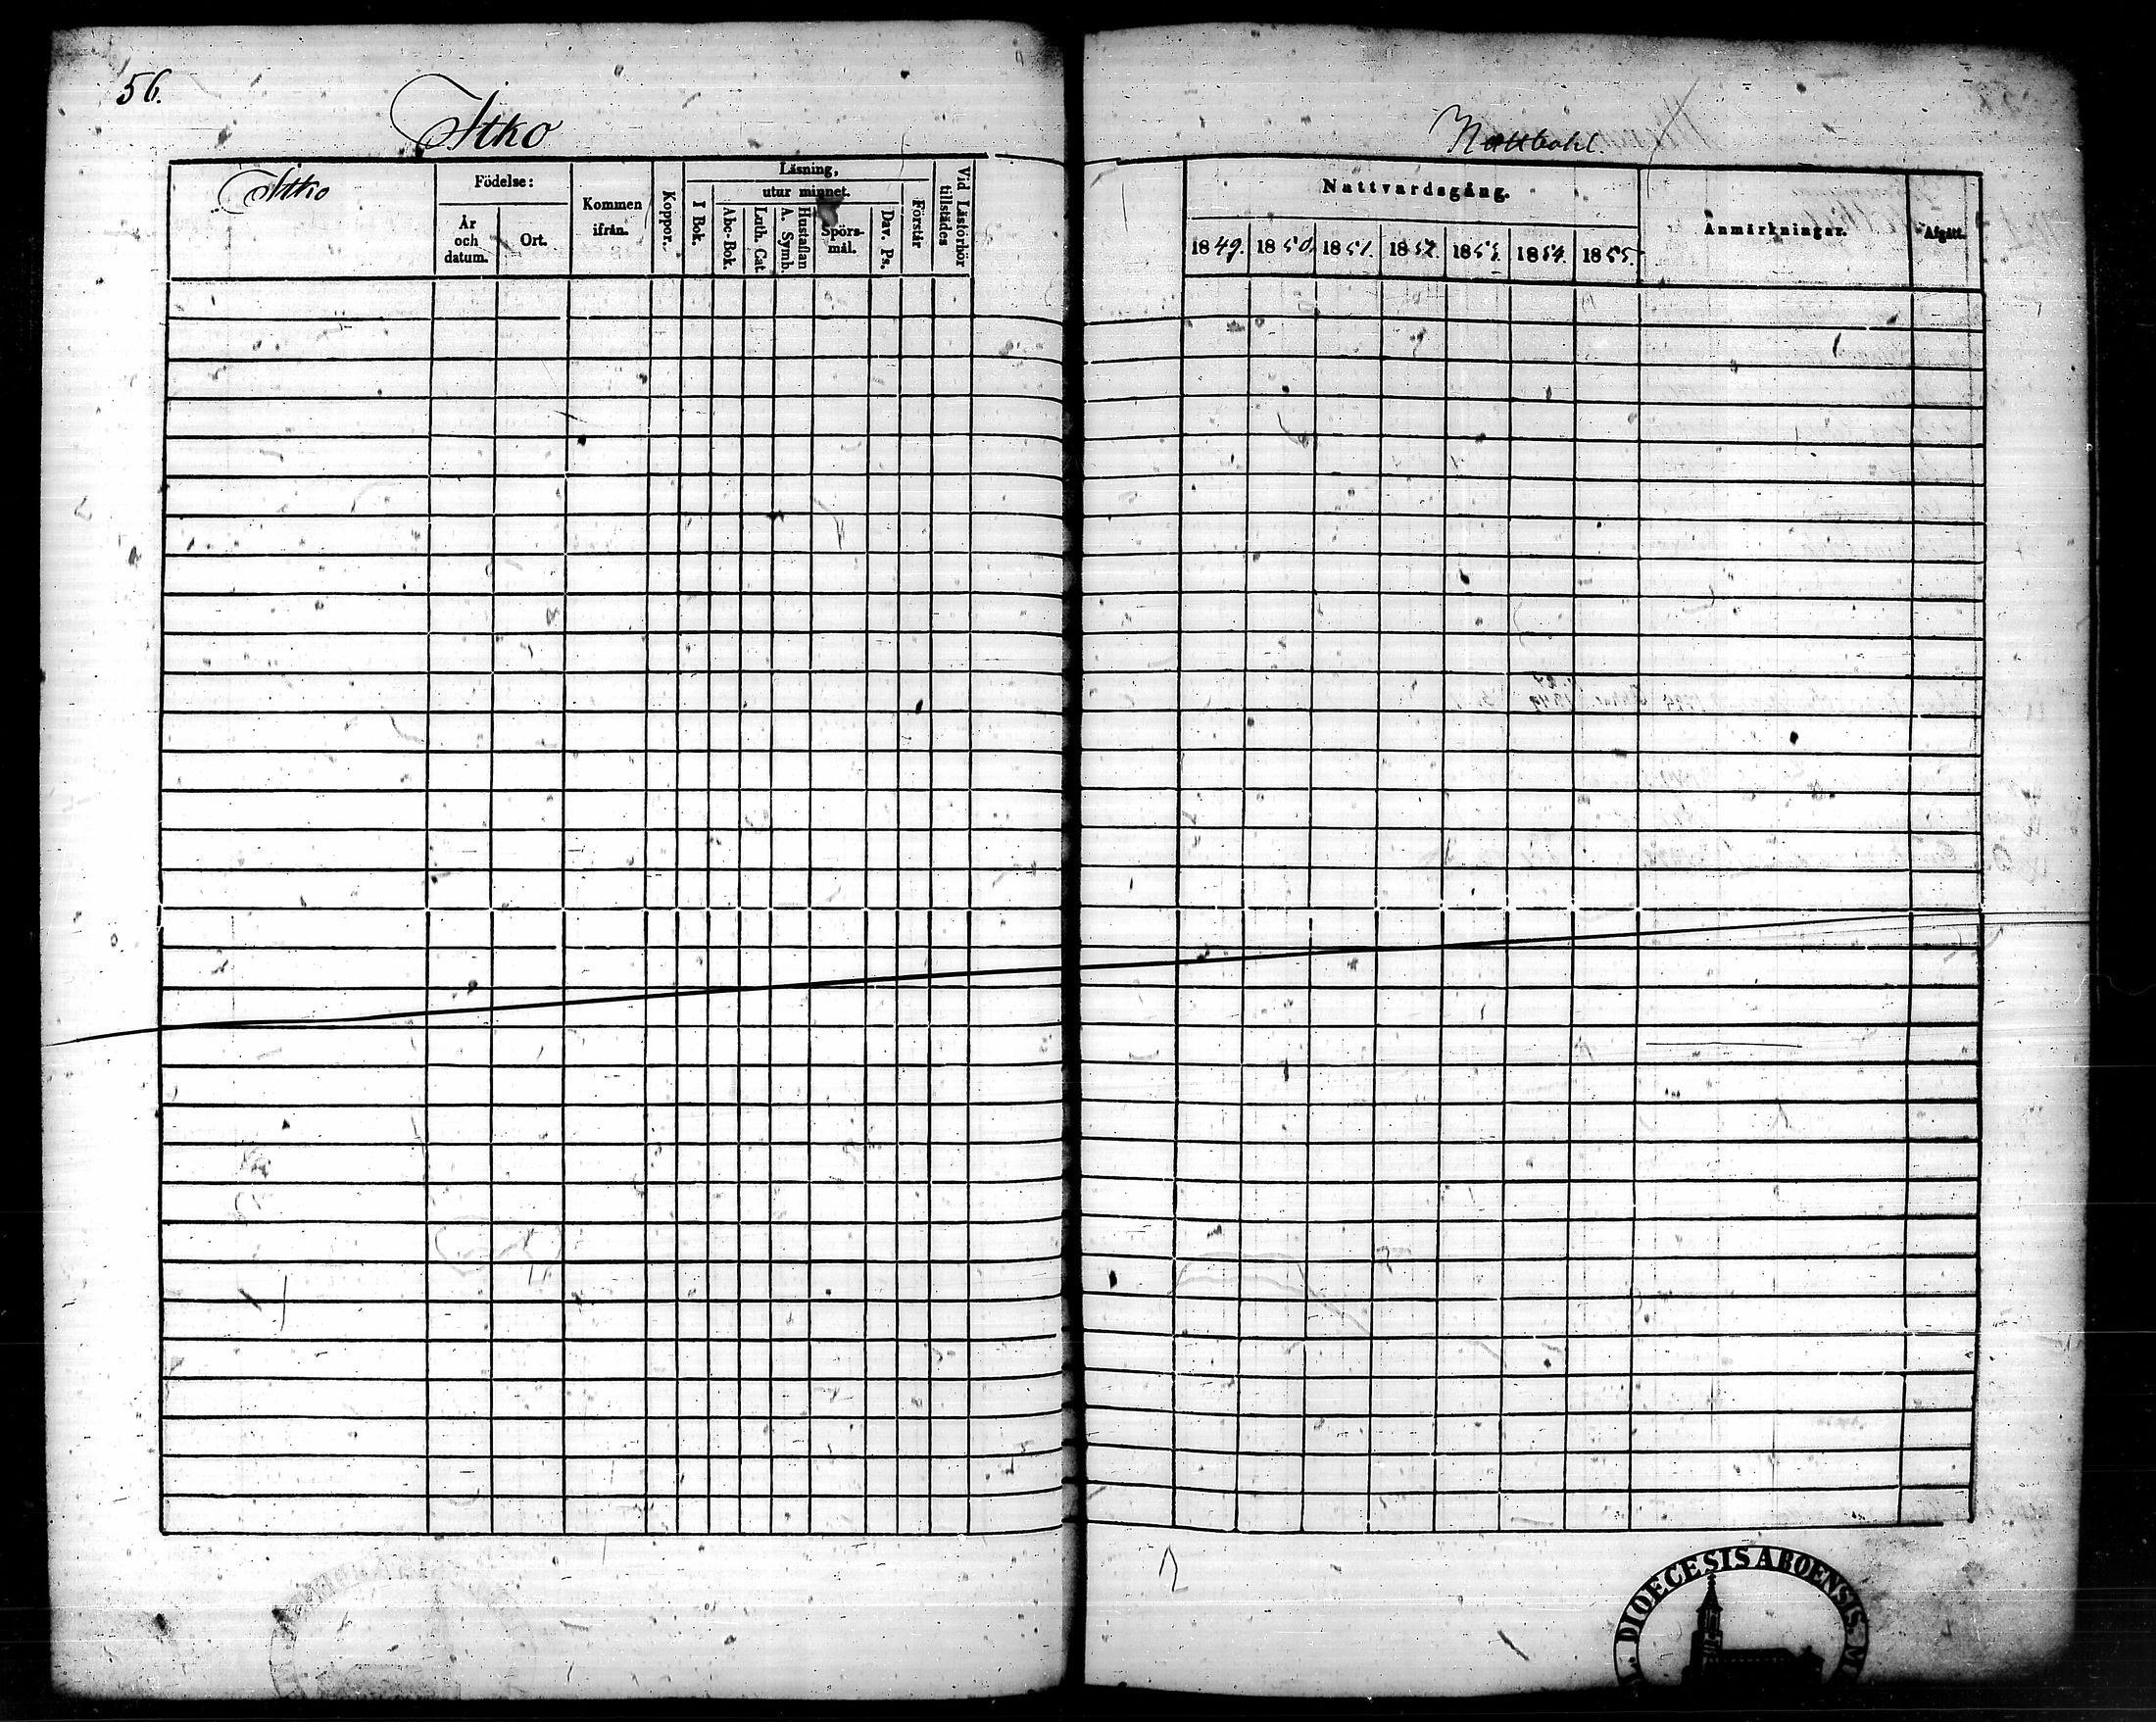 56.
Itko
Nattbohl.
Itko
Födelse:
År och datum.
Ort.
Kommen ifrån.
Koppor.
Läsning,
utur minnet.
I Bok.
Abc-Bok.
Luth. Cat.
Hustaflan A. Symb.
Spörs-mål.
Dav. Ps.
Förstår
Vid Läsförhör tillstädes
Nattvardsgång.
1849.
1850.
1851.
1852.
1853.
1854.
1855.
Anmärkningar.
Afgått.
DIOECESIS ABOENSIS. M